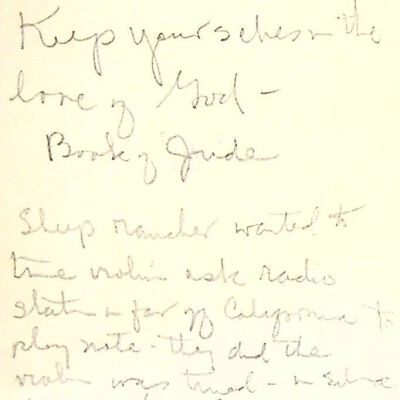 Keep yourselves in the
love of God -
Book of Jude
Sheep rancher wanted to
tune violin ask radio
station in far off California to
play note - they did the
violin was tuned - in